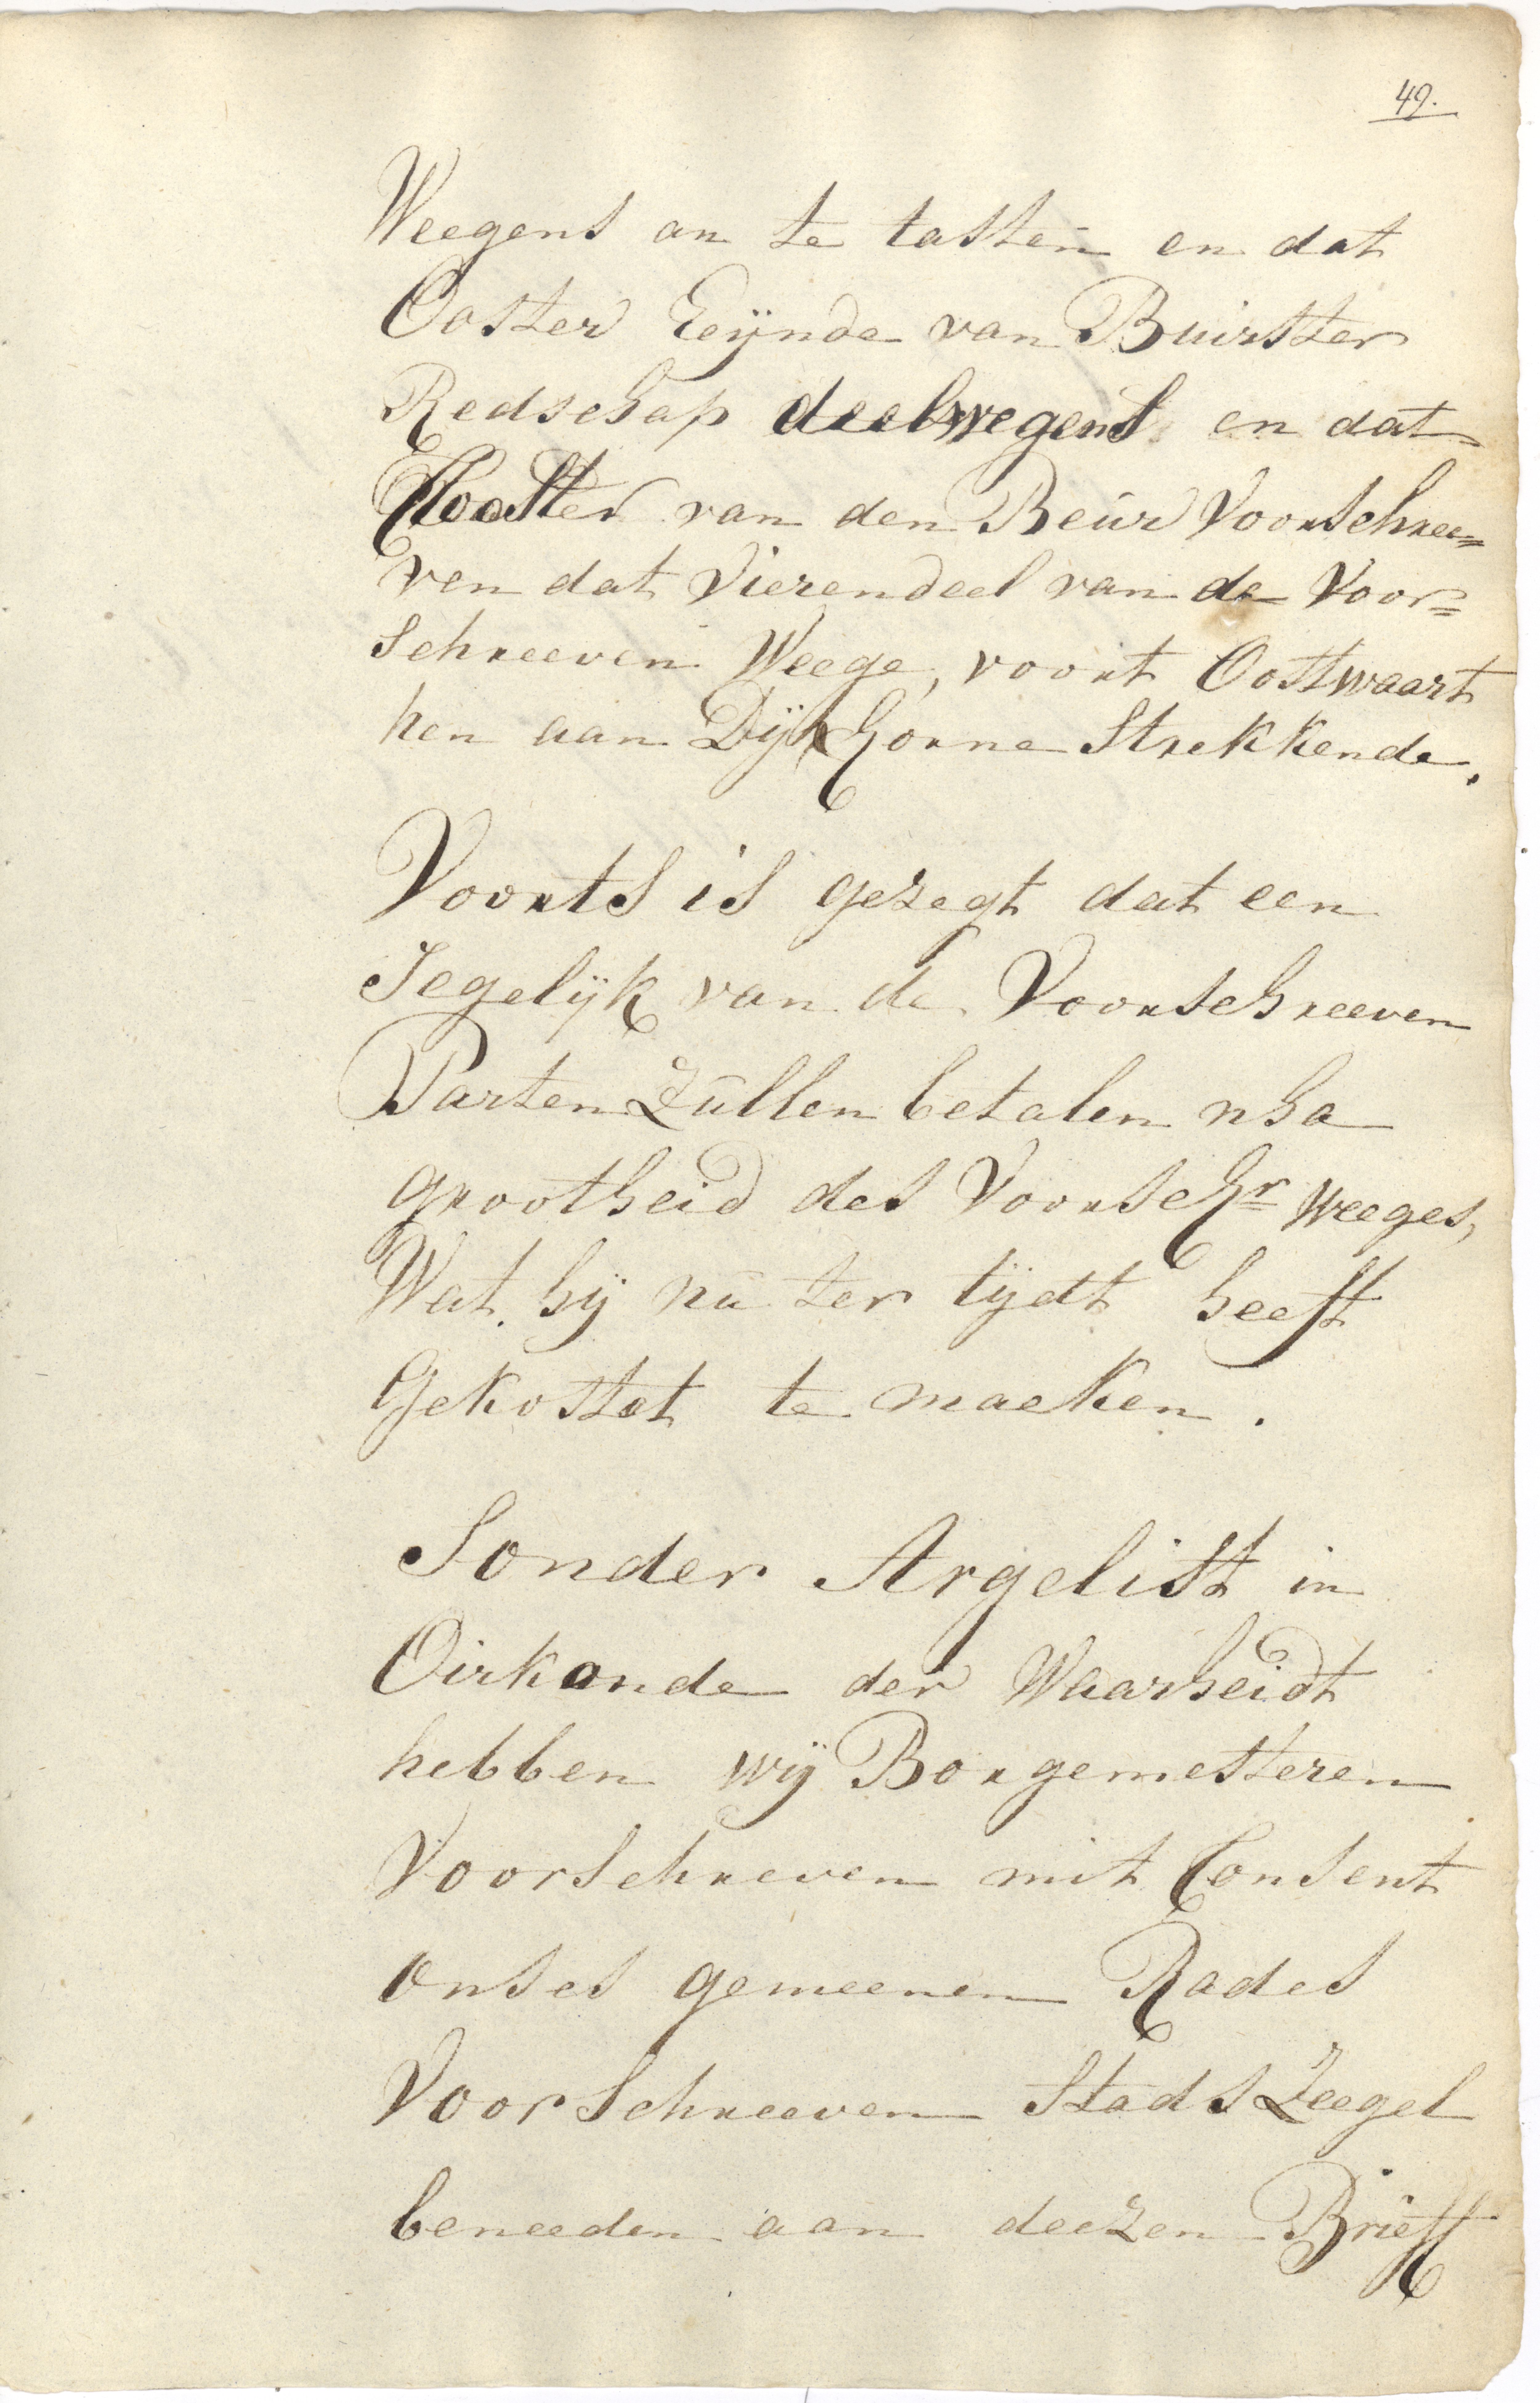 49.
Weegens an te tasten en dat
Ooster Eeÿnde van Buirster
Redschap deelswegens en dat
Clooster van den Beur Voorschree=
ven dat Vierendeel van de Voor=
schreeven Weege, voort Oostwaart
hen aan Dÿkhorne Strekkende.
Voorts is gezegt dat een
Iegelÿk van de Voorschreeven
Parten Zullen betalen nha
grootheid des Voorschr Weeges,
Wat hÿ nu ter tÿdt heeft
Gekostet te maeken.
Sonder Argelist in
Oirkonde der Waarheidt
hebben wÿ Borgemesteren
Voorschreven mit Consent
onses gemeenen Rades
Voorschreeven Stads Zeegel
beneeden aan deezen Brieff